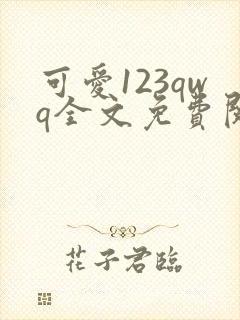 可愛123qw
q全文免費閱
花子君臨